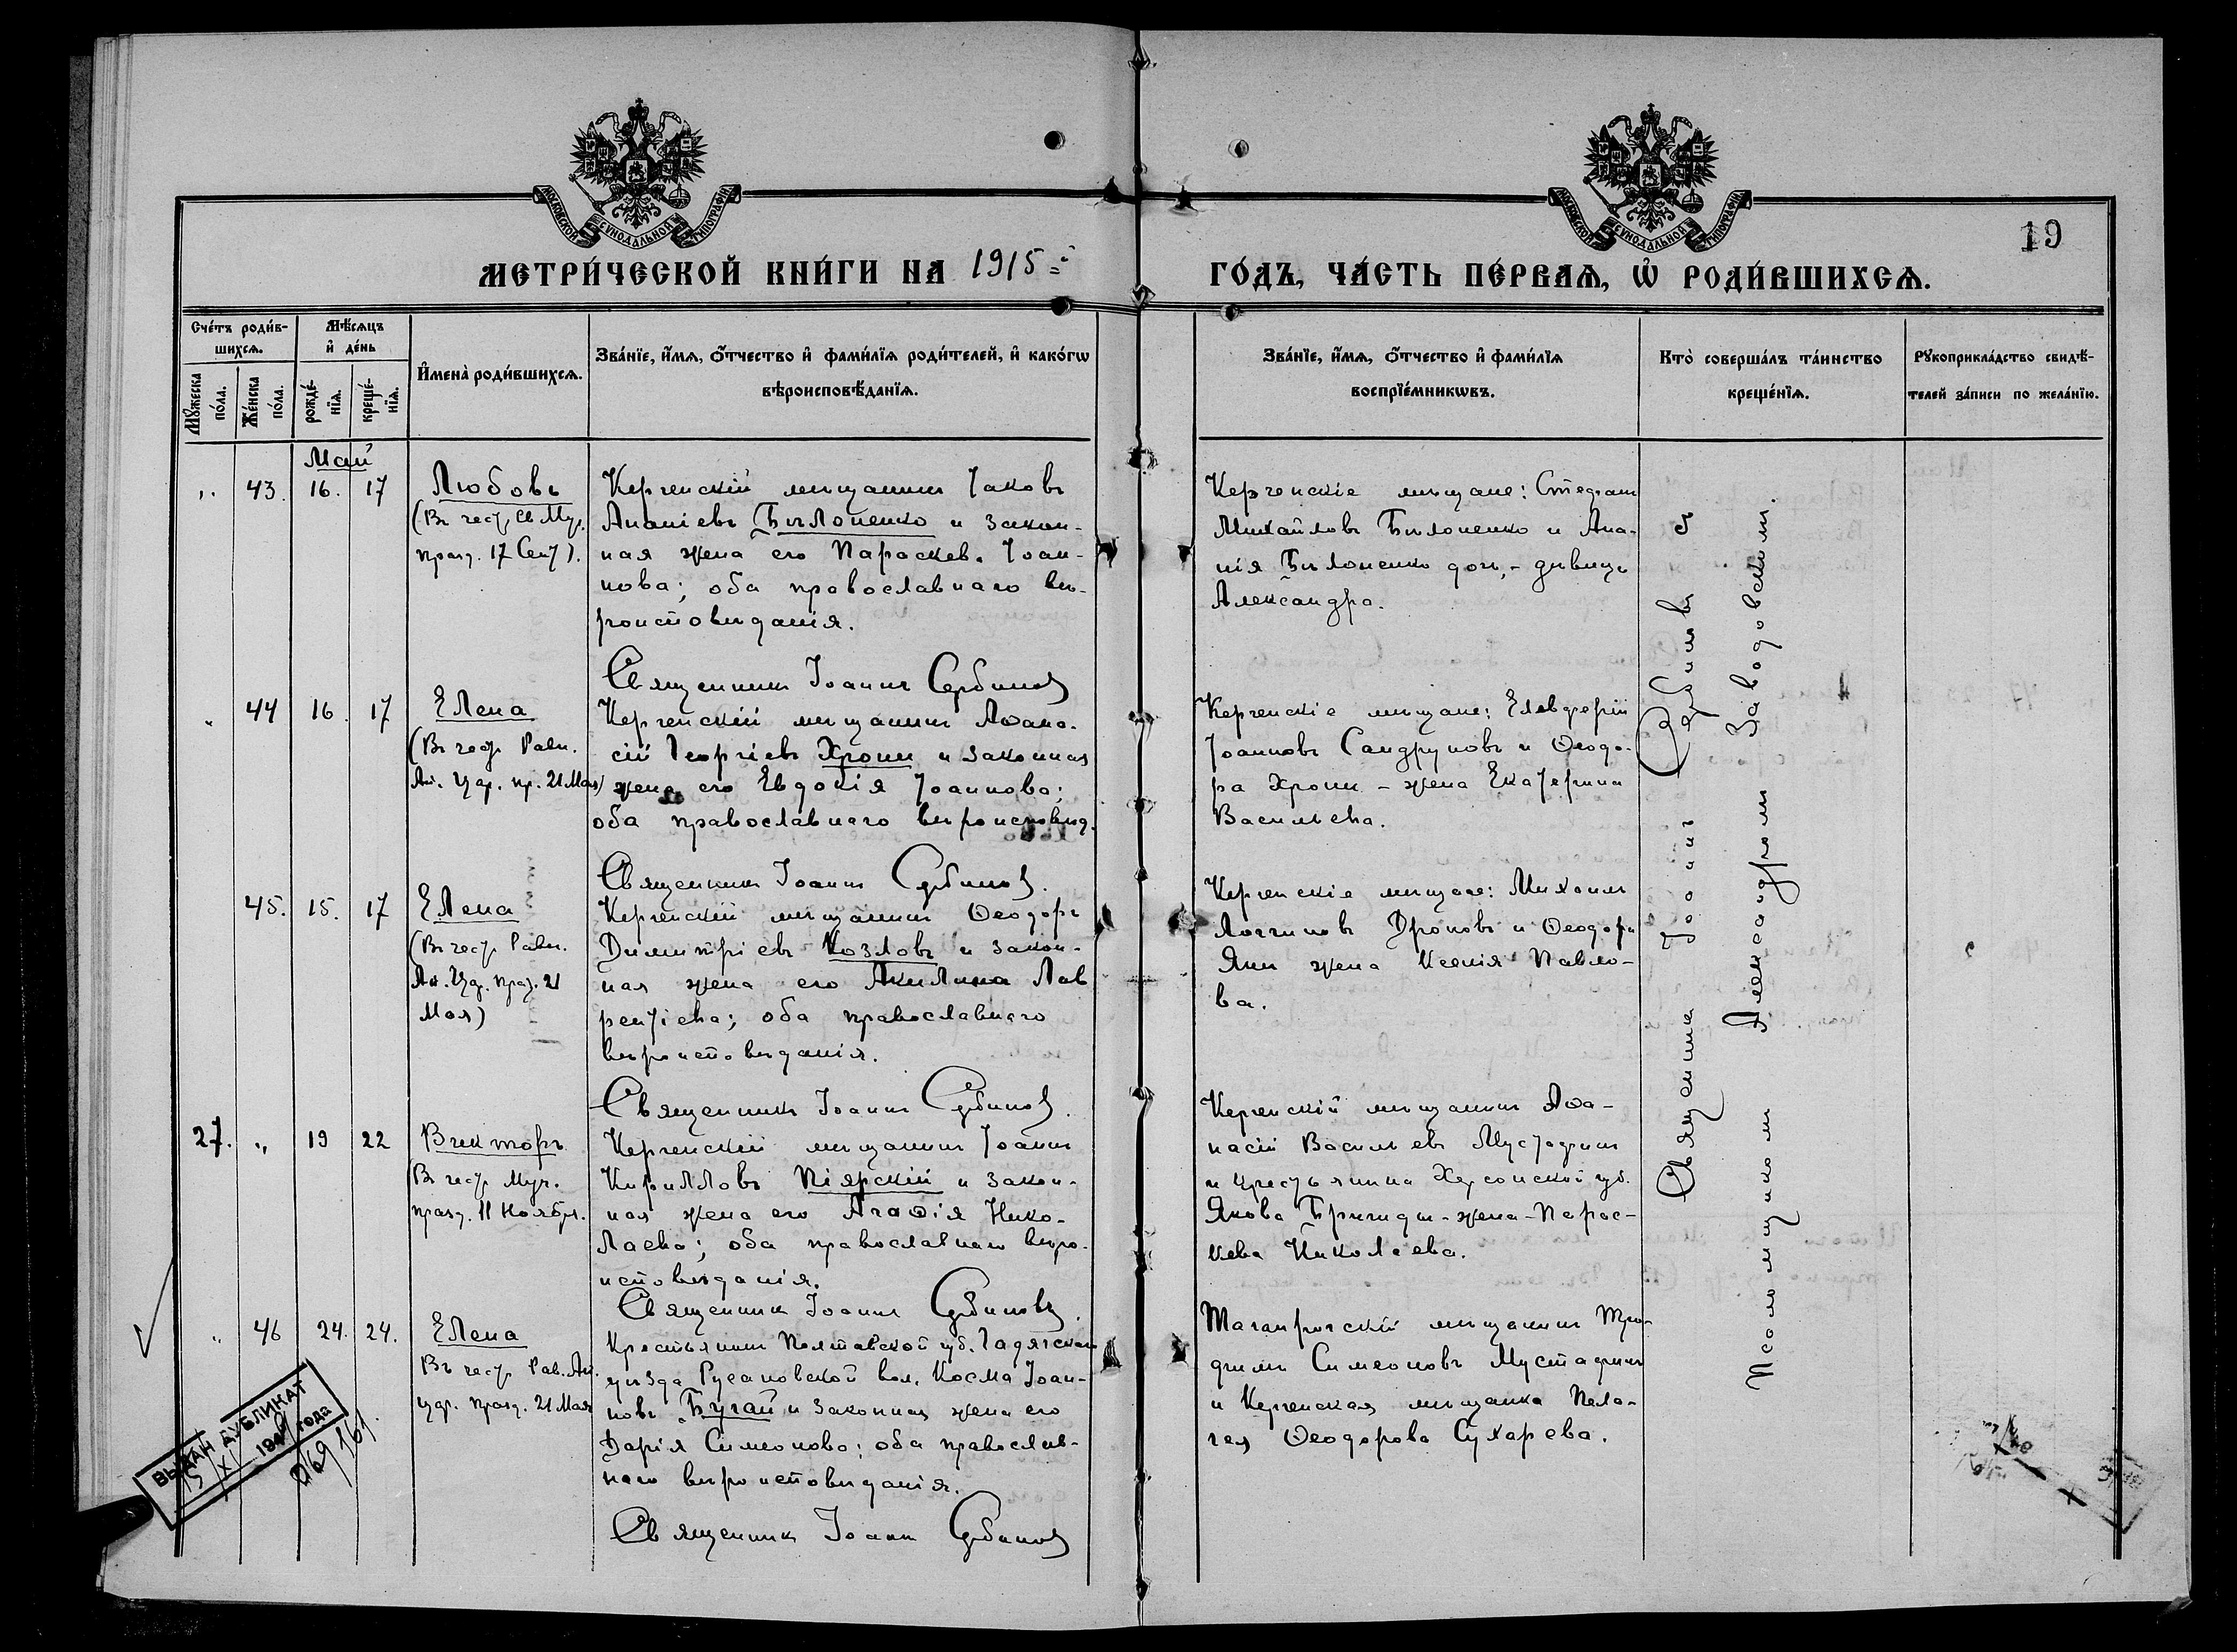 МОСКОВСКОЙ СѴНОДАЛЬНОЙ ТИПОГРАФІИ
МОСКОВСКОЙ СѴНОДАЛЬНОЙ ТИПОГРАФІИ
19
МЕТРИ́ЧЕСКОЙ КНИ́ГИ НА 1915 =й
ГО́ДЪ, ЧА́СТЬ ПЕ́РВАЯ, Ѡ҆ РОДИ́ВШИХСЯ.
Сче́тъ роди́в-
шихся.
Му́жеска по́ла.
Же́нска по́ла.
Мѣ́сяцъ
и҆ де́нь
рожде́-
нїя.
креще́-
нїя.
И҆мена̀ роди́вшихся.
Зва́нїе, и҆́мя, ѻ҆́тчество и҆ фами́лїя роди́телей, и҆ како́гѡ
вѣроисповѣ́данїя.
Зва́нїе, и҆́мя, ѻ҆́тчество и҆ фами́лїя
воспрїе́мникѡвъ.
Кто̀ соверша́лъ та́инство
креще́нїя.
Рꙋкоприкла́дство свидѣ́-
телей за́писи по жела́нїю.
Май
„ 43. 16. 17
Любовь
(Въ честь св. Муч.
празд. 17 Сент).
Керченскій мѣщанинъ Іаковъ
Ананіевъ Бѣлоненко и закон-
ная жена его Параскева Іоан-
нова; оба православнаго вѣ-
роисповѣданія.
Священникъ Іоаннъ Сербиновъ
Керченскіе мѣщане: Стефанъ
Михайловъ Бѣлоненко и Ана-
нія Бѣлоненко дочь, - дѣвица
Александра.
„ 44 16. 17
Елена
(Въ честь Равн.
Ап. Цар. пр. 21 Мая)
Керченскій мѣщанинъ Аѳана-
сій Георгіевъ Хрони и законная
жена его Евдокія Іоаннова;
оба православнаго вѣроисповѣд.
Священникъ Іоаннъ Сербиновъ.
Керченскіе мѣщане: Елевферій
Іоанновъ Сандруновъ и Ѳеодо-
ра Хрони - жена Екатерина
Васильева.
45. 15. 17
Елена
(Въ честь Равн.
Ап. Цар. праз. 21
Мая)
Керченскій мѣщанинъ Ѳеодоръ
Димитріевъ Козловъ и закон-
ная жена его Акилина Лав
рентіева; оба православнаго
вѣроисповѣданія.
Священникъ Іоаннъ Сербиновъ.
Керченскіе мѣщане: Михаилъ
Дроновъ и Ѳеодора
Яни жена Ксенія Павло-
ва.
27. „ 19 22
Викторъ
Въ честь Муч.
празд. 11 Ноября.
Керченскій мѣщанинъ Іоаннъ
Кирилловъ Піярскій и закон-
ная жена его Агаѳія Нико-
лаева; оба православнаго вѣро-
исповѣданія.
Священникъ Іоаннъ Сербиновъ.
Керченскій мѣщанинъ Аѳа-
насій Васильевъ Мустафинъ
и крестьянина Херсонской губ.
Якова - жена - Парас-
кева Николаева.
„ 46 24. 24.
Елена
Въ честь Рав. Ап.
цар. празд. 21 Мая
Крестьянинъ Полтавской губ. Гадячскаго
уѣзда Русановской вол. Косма Іоан-
новъ Бугай и законная жена его
Дарія Симеонова; оба православ-
наго вѣроисповѣданія.
Священникъ Іоаннъ Сербиновъ
Таганрогскій мѣщанинъ Тро-
фимъ Симеоновъ Мустафинъ
и Керченская мѣщанка Пела-
гея Ѳеодорова Сухарева.
Священникъ Іоаннъ Сербиновъ съ
Псаломщикомъ Александромъ Заводовскимъ.
ВЫДАН ДУБЛИКАТ
15 XI 194 года